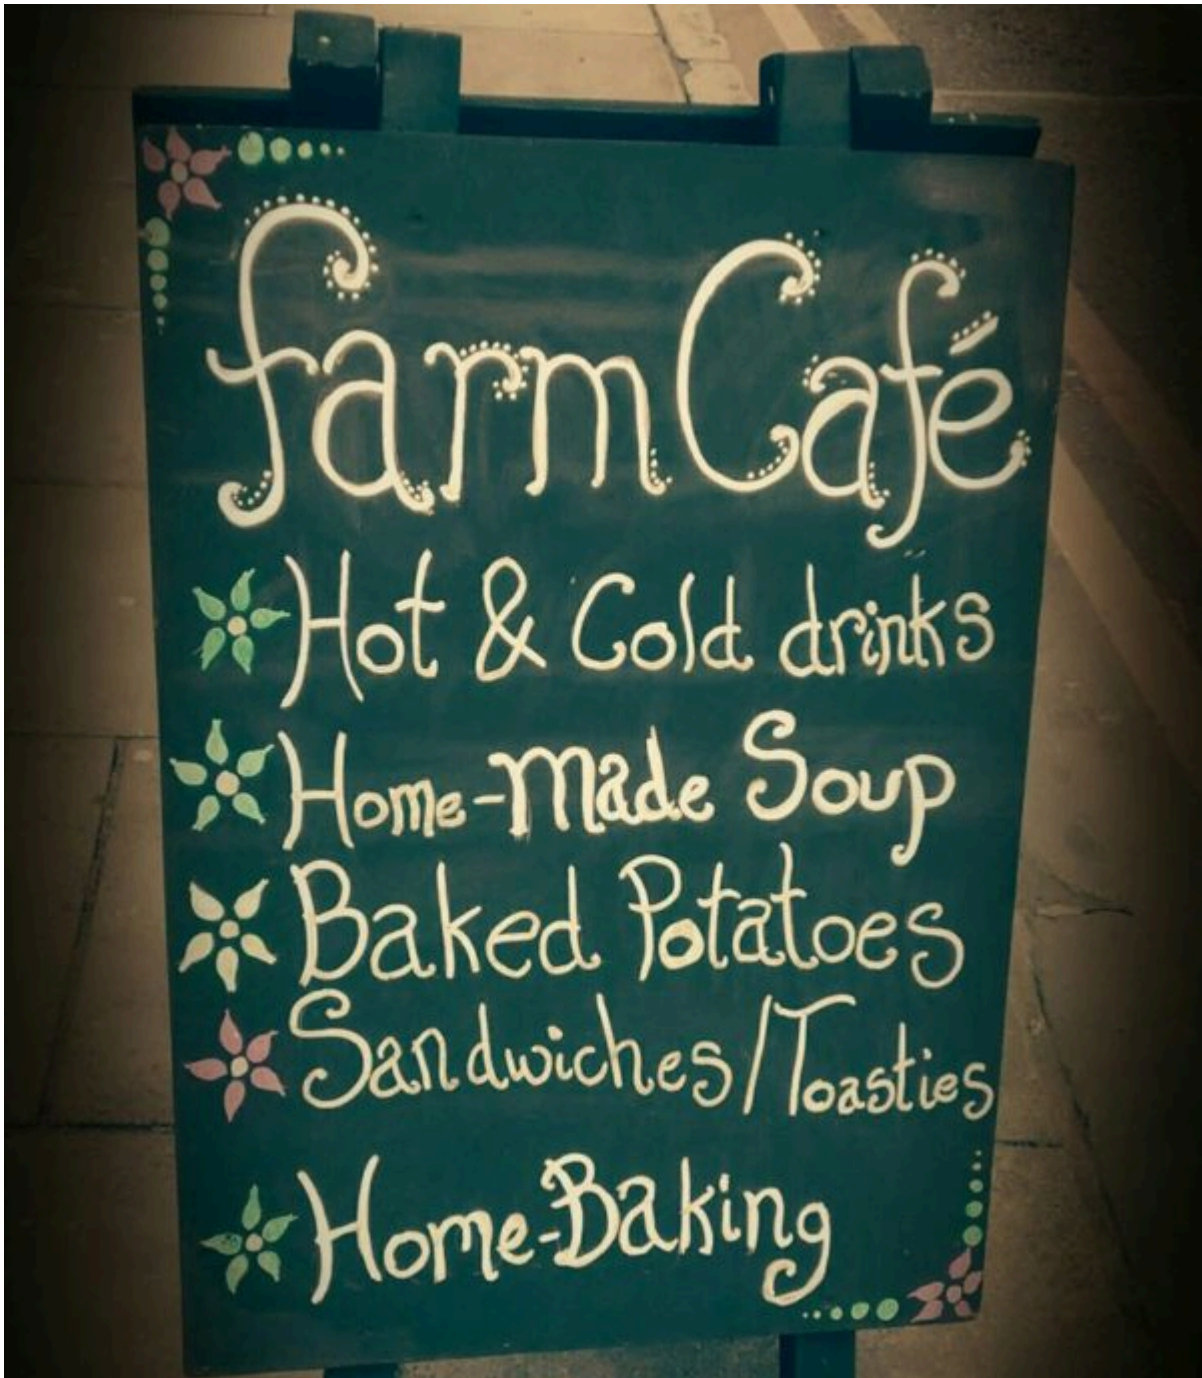 farm Café
Hot & Cold drinks
Home-made Soup
Baked Potatoes
Sandwiches/Toasties
Home-Baking